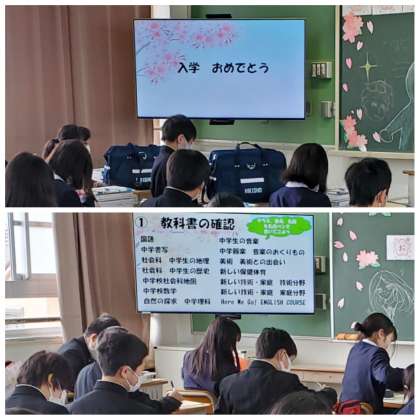 入学　おめでとう
① 教科書の確認
国語
中学書写
社会科　中学生の地理
社会科　中学生の歴史
中学校社会科地図
中学校数学
自然の探求　中学理科
中学生の音楽
中学器楽　音楽のおくりもの
美術　美術との出会い
新しい保健体育
新しい技術・家庭　技術分野
新しい技術・家庭　家庭分野
Here We Go! ENGLISH COURSE